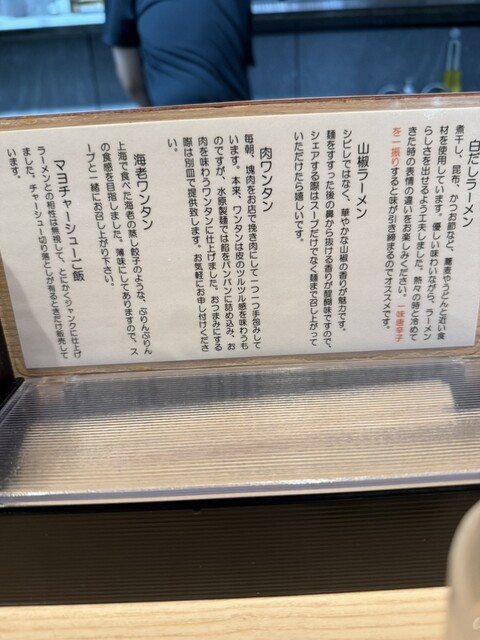 白だしラーメン
煮干し、昆布、かつお節など、蕎麦やうどんと近い食
材を使用しています。優しい味わいながら、ラーメン
らしさを出せるよう工夫しました。熱々の時と冷めて
きた時の表情の違いをお楽しみください。一味唐辛子
を一振りすると味が引き締まるのでオススメです。
山椒ラーメン
シビレではなく、華やかな山椒の香りが魅力です。
麺をすすった後の鼻から抜ける香りが醍醐味ですので、
シェアする際はスープだけでなく麺まで召し上がって
いただけたら嬉しいです。
肉ワンタン
毎朝、塊肉をお店で挽き肉にして一つ一つ手包みして
います。本来、ワンタンは皮のツルツル感を味わうも
のですが、水原製麺では餡をパンパンに詰め込み、お
肉を味わうワンタンに仕上げました。おつまみにする
際は別皿で提供致します。お気軽にお申し付けくださ
い。
海老ワンタン
上海で食べた海老の蒸し餃子のような、ぷりんぷりん
の食感を目指しました。薄味にしてありますので、ス
ープと一緒にお召し上がり下さい。
マヨチャーシューご飯
ラーメンとの相性は無視して、とにかくジャンクに仕上げ
ました。チャーシュー切り落としが有るときだけ販売して
います。